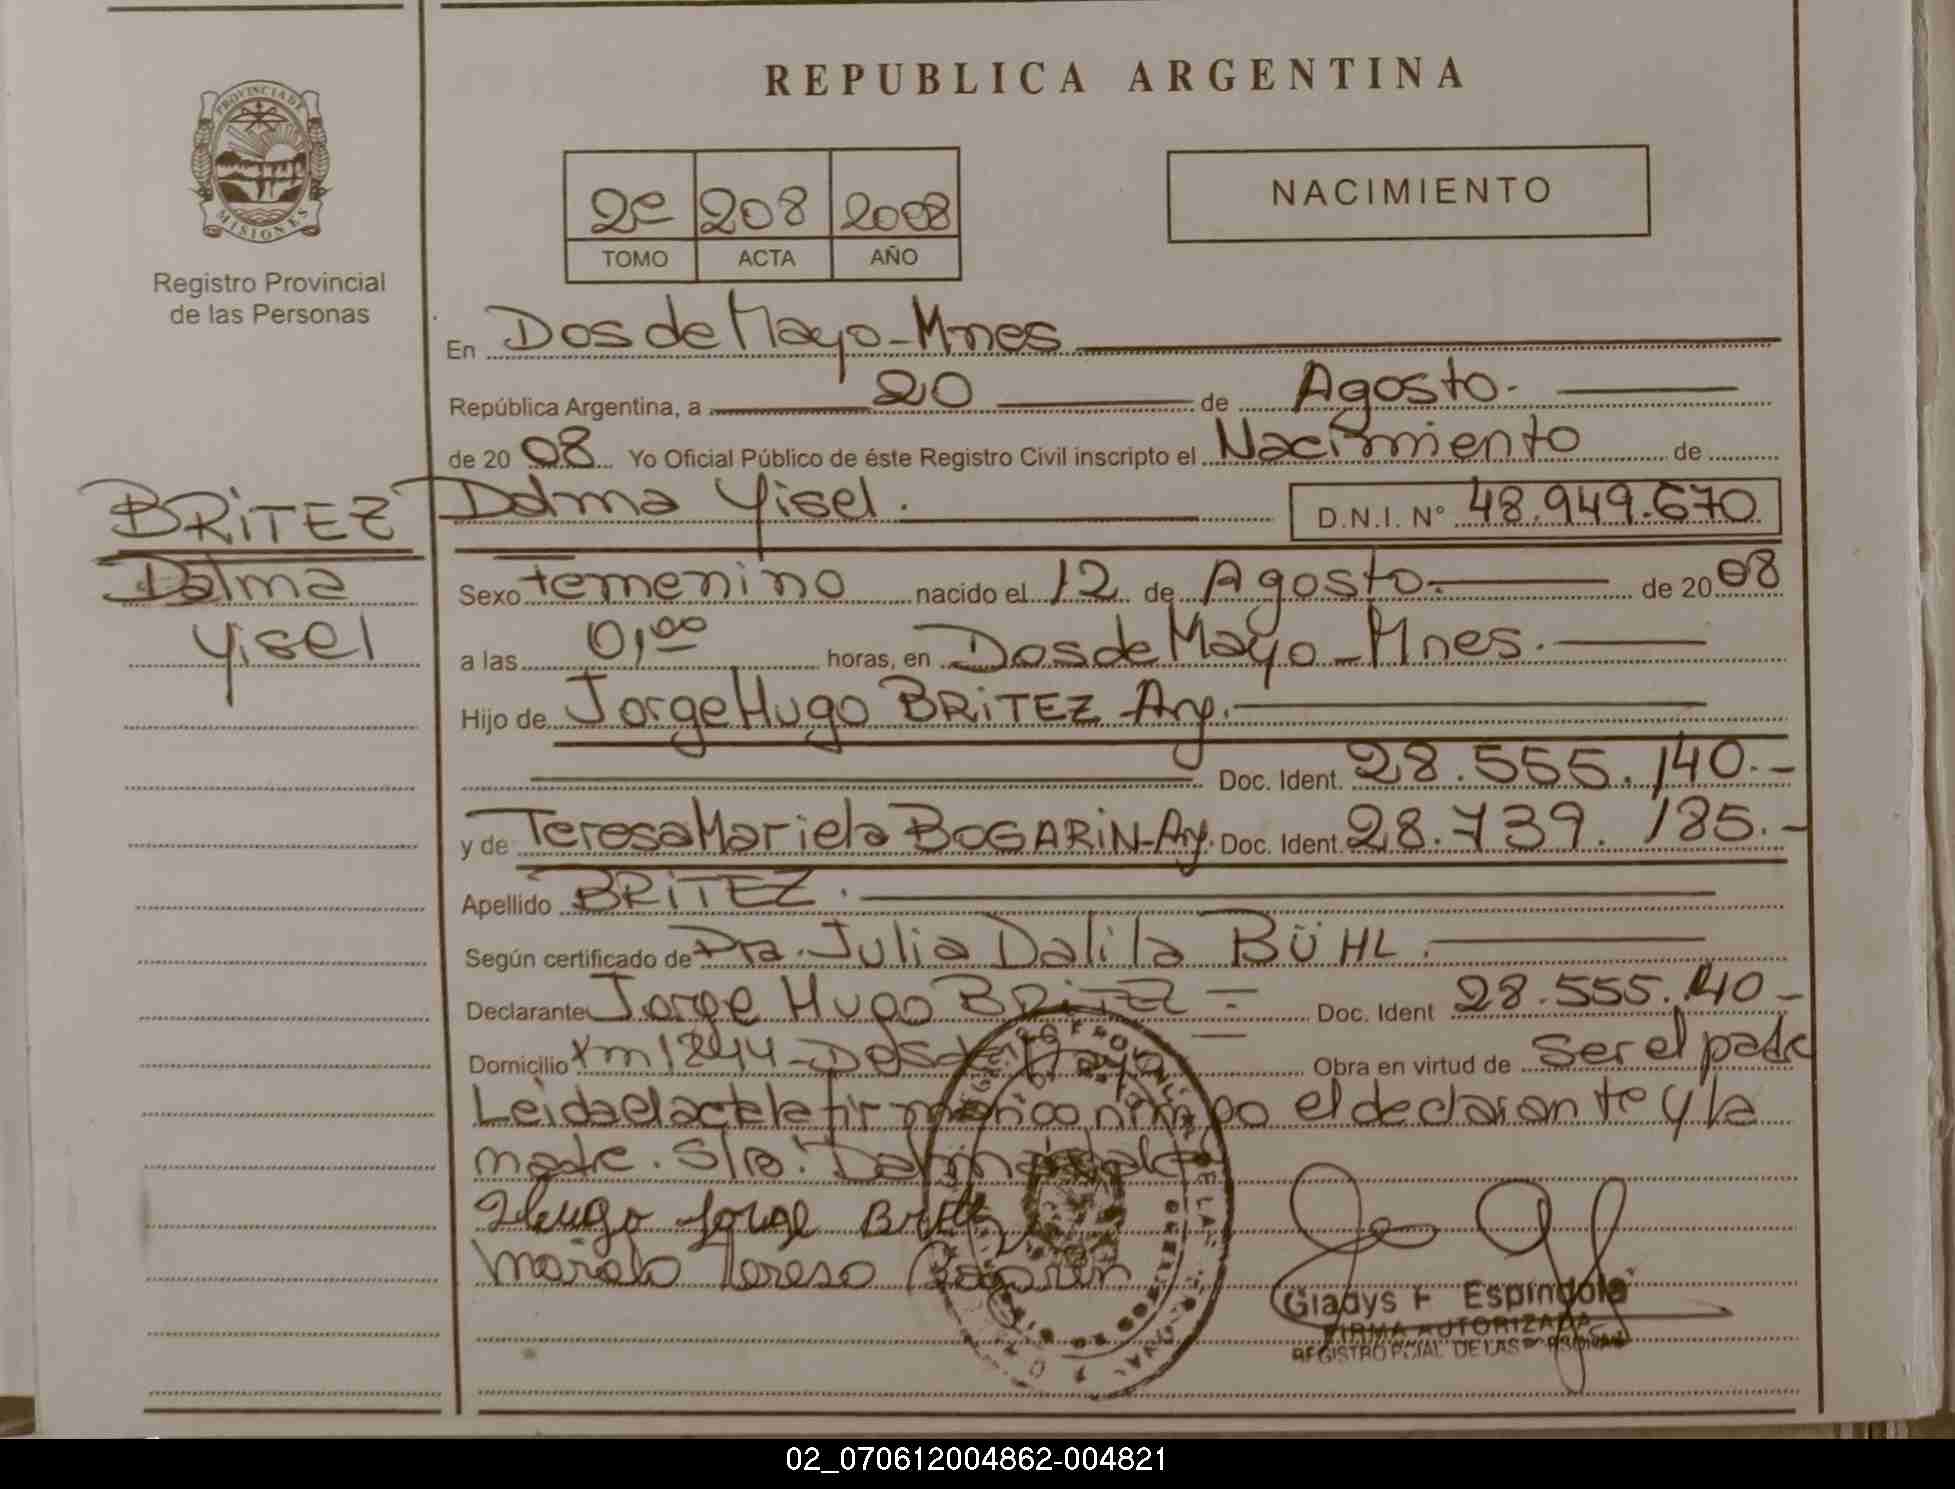 REPUBLICA ARGENTINA
PROVINCIA DE
MISIONES
Registro Provincial
de las Personas
2º 208 2008
TOMO ACTA AÑO
NACIMIENTO
En Dos de Mayo - Mnes
República Argentina, a 20 de Agosto.
de 20 08 Yo Oficial Público de éste Registro Civil inscripto el Nacimiento de
BRITEZ
Dalma
Yisel
Dalma Yisel. D.N.I. N° 48.949.670
Sexo femenino nacido el 12 de Agosto. de 20 08
a las 0,00 horas, en Dos de Mayo - Mnes.
Hijo de Jorge Hugo BRITEZ Arg.
Doc. Ident. 28.555.140.-
y de Teresa Mariela BOGARIN - Arg. Doc. Ident. 28.739.185.-
Apellido BRITEZ.
Según certificado de Dra. Julia Dalila BÜHL.
Declarante Jorge Hugo BRITEZ Doc. Ident 28.555.140-
Domicilio Km 1244 - Dos de Mayo Obra en virtud de ser el padre
Leida el acta la firman conmigo el declarante y la
madre. S/R: Dalma
Hugo Jorge Britez
Mariela Teresa Bogarin
Gladys F Espindola
FIRMA AUTORIZADA
REGISTRO PCIAL DE LAS PERSONAS
02_070612004862-004821